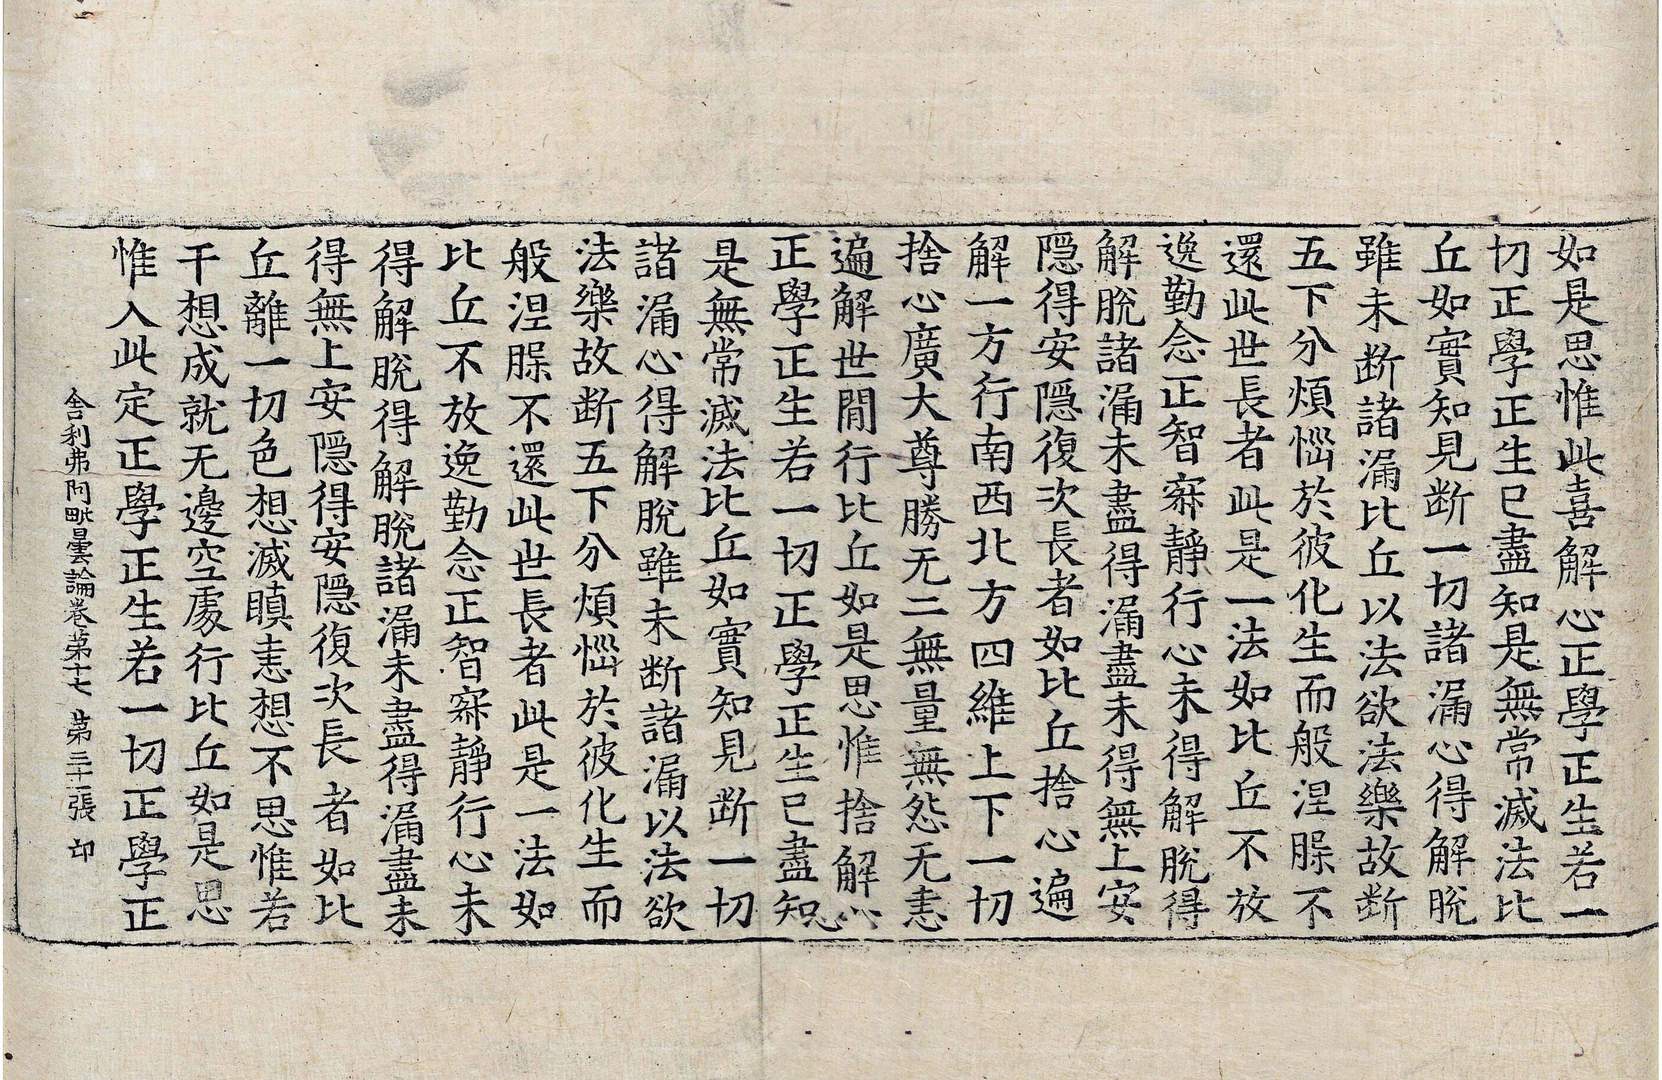 如是思惟此喜解心正學正生若一
切正學正生已盡知是無常滅法比
丘如實知見断一切諸漏心得解脫
雖未断諸漏比丘以法欲法樂故断
五下分煩惱於彼化生而般涅槃不
還此世長者此是一法如比丘不放
逸勤念正智寂靜行心未得解脫得
解脫諸漏未盡得漏盡未得無上安
隱得安隱復次長者如比丘捨心遍
解一方行南西北方四維上下一切
捨心廣大尊勝无二無量無怨无恚
遍解世間行比丘如是思惟捨解心
正學正生若一切正學正生已盡知
是無常滅法比丘如實知見断一切
諸漏心得解脫雖未断諸漏以法欲
法樂故断五下分煩惱於彼化生而
般涅槃不還此世長者此是一法如
比丘不放逸勤念正智寂靜行心未
得解脫得解脫諸漏未盡得漏盡未
得無上安隱得安隱復次長者如比
丘離一切色想滅瞋恚想不思惟若
干想成就无邊空處行比丘如是思
惟入此定正學正生若一切正學正
舍利弗阿毗曇論卷第十七 第三十一張 印